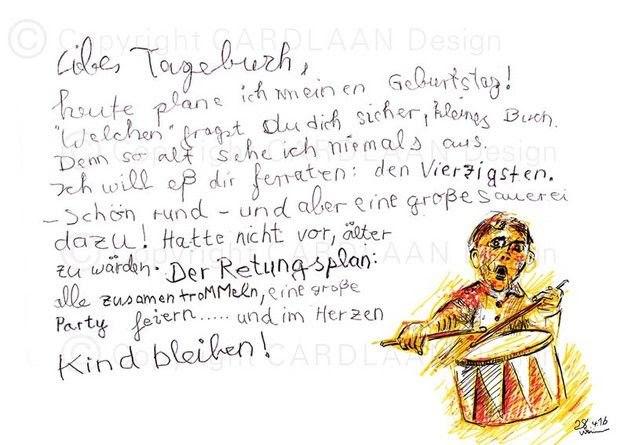 © Copyright CARDLAAN Design
Libes Tagebuch,
heute plane ich meinen Geburtstag!
"Welchen" fragst Du dich sicher, kleines Buch.
Denn so alt sehe ich niemals aus.
Ich will eß dir ferraten: den Vierzigsten.
- Schön rund - und aber eine große sauerei
dazu! Hatte nicht vor, älter
zu wärden. Der Retungsplan:
alle zusamen troMMeln, eine große
Party feiern..... und im Herzen
Kind bleiben!
© Copyright CARDLAAN Design
28.4.16